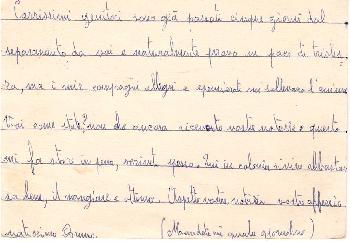 Carissimi genitori sono già passati cinque giorni dal
separamento da voi e naturalmente provo un poco di tristez-
za, ma i miei compagni allegri e spensierati mi sollevano l'anima
Voi come state? non ho ancora ricevuto vostre notizie e questo
mi fa stare in pena, scrivete spesso. Qui in colonia si vive abbastan-
za bene, il mangiare è ottimo. Aspetto vostre notizie vostro affezio-
natissimo
(Mandatemi qualche giornalino)